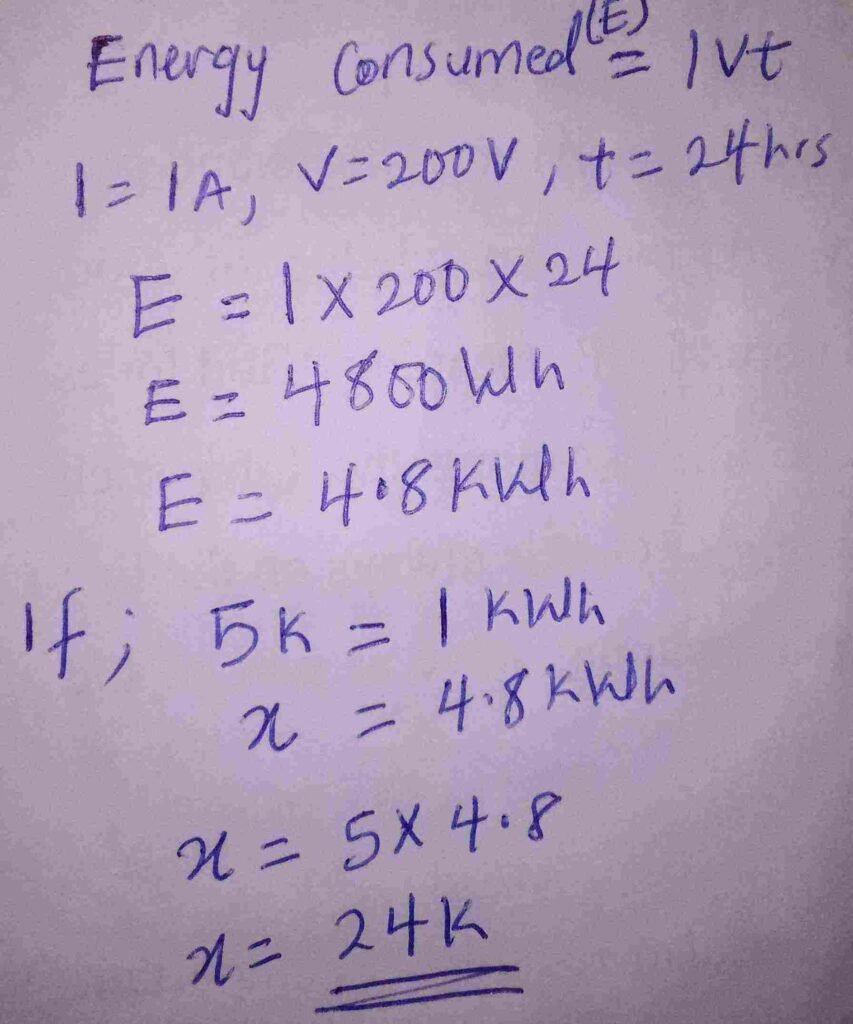 Energy Consumed (E) = IVt
I = 1A, V=200V, t= 24hrs
E = 1 X 200 X 24
E = 4800 Wh
E = 4.8 KWh
If; 5K = 1 KWh
x = 4.8 KWh
x = 5 X 4.8
x = 24K